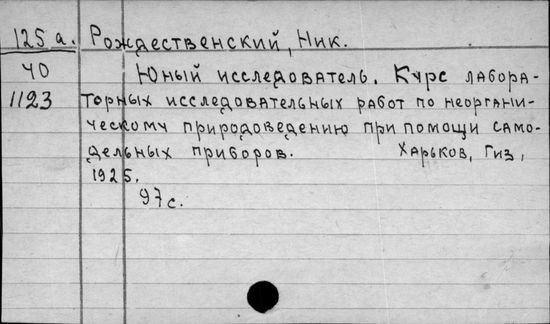 125 а. Рождественский, Ник.
40 Юный исследователь. Курс лабора-
1123 торных исследовательных работ по неоргани-
ческому природоведению при помощи само-
дельных приборов. Харьков, Гиз,
1925.
97 с.